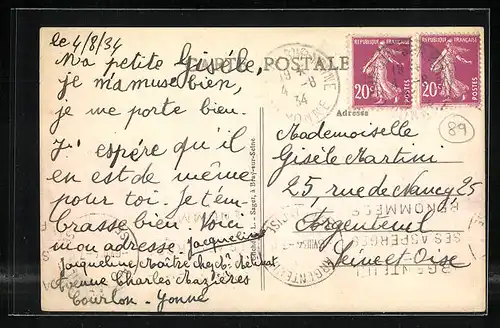 le 4/8/34
Ma petite Gisèle,
je m'amuse bien,
je me porte bien.
J'espère qu'il
en est de même
pour toi. Je t'em-
brasse bien. Voici
mon adresse Jacqueline
Jacqueline Maître chez Mr
Avenue Charles Mazières
Courlon - Yonne
CARTE POSTALE
YONNE
4 -8
34
REPUBLIQUE FRANÇAISE
20c
POSTES
REPUBLIQUE FRANÇAISE
20c
POSTES
89
Adresse
Mademoiselle
Gisèle Martini
25, rue de Nancy 25
Argenteuil
Seine-et-Oise
ARGENTEUIL
SES ASPERGES
RENOMMÉES
Saget, à Bray-sur-Seine.